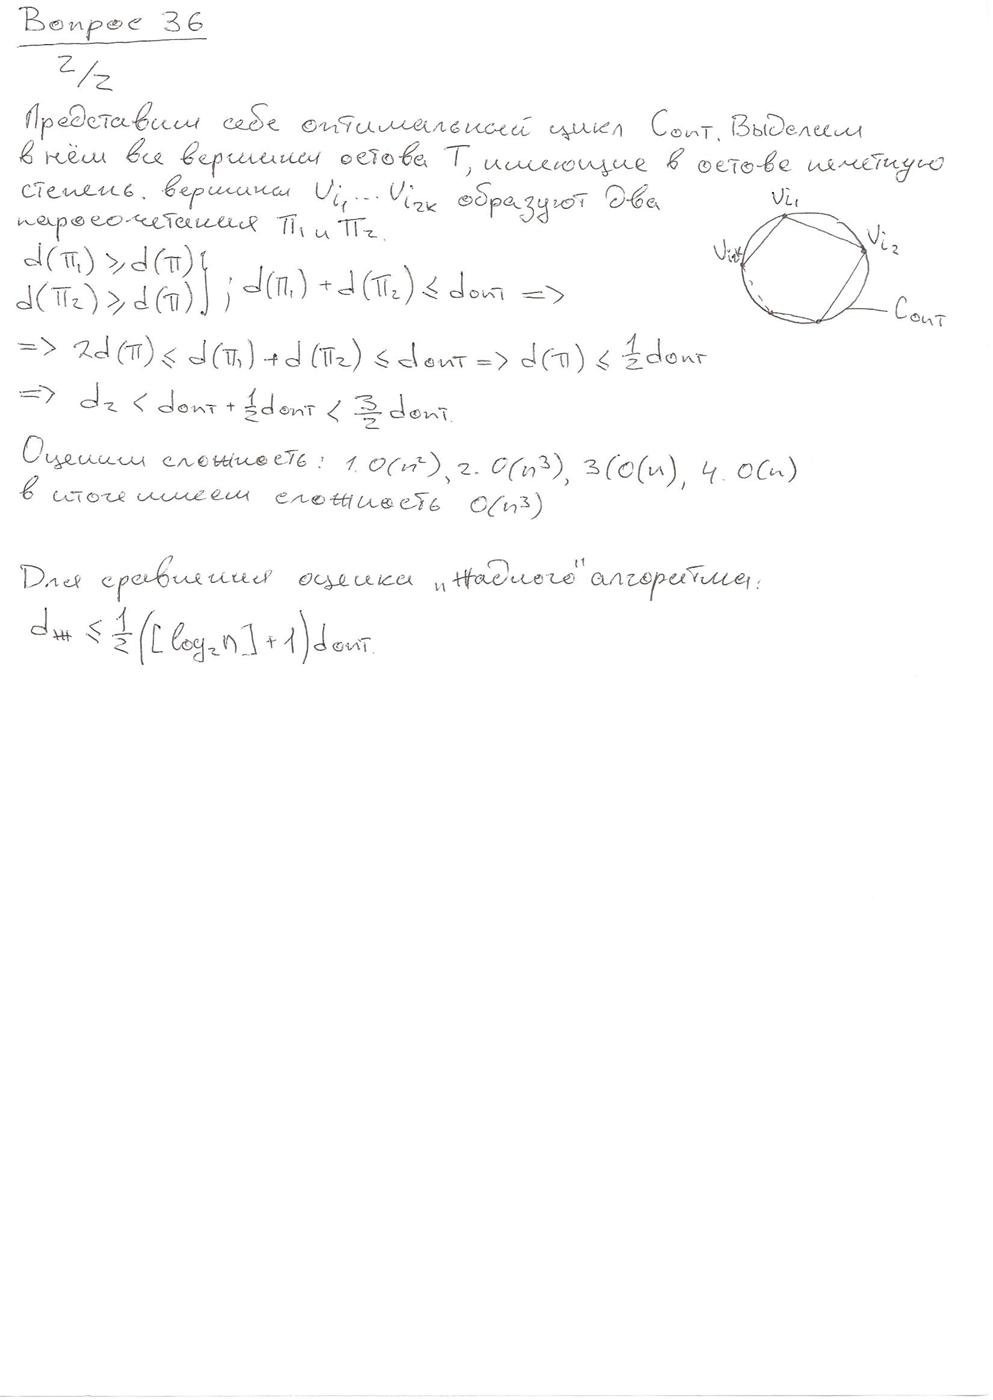 Вопрос 36
2/2
Представим себе оптимальный цикл Cопт. Выделим
в нём все вершины остова T, имеющие в остове нечётную
степень. вершины Vi₁ ... Vi₂ₖ образуют два
паросочетания π₁ и π₂.
Vi₁
Vi₂
Vi₂ₖ
Cопт
d(π₁) ⩾ d(π)
d(π₂) ⩾ d(π) } ; d(π₁) + d(π₂) ≤ dопт =>
=> 2d(π) ≤ d(π₁) + d(π₂) ≤ dопт => d(π) ≤ 1/2 dопт
=> d₂ < dопт + 1/2 dопт < 3/2 dопт.
Оценим сложность: 1. O(n²), 2. O(n³), 3(O(n), 4. O(n)
в итоге имеем сложность O(n³)
Для сравнения оценка „Жадного" алгоритма:
dж ≤ 1/2 ([log₂n] + 1) dопт.